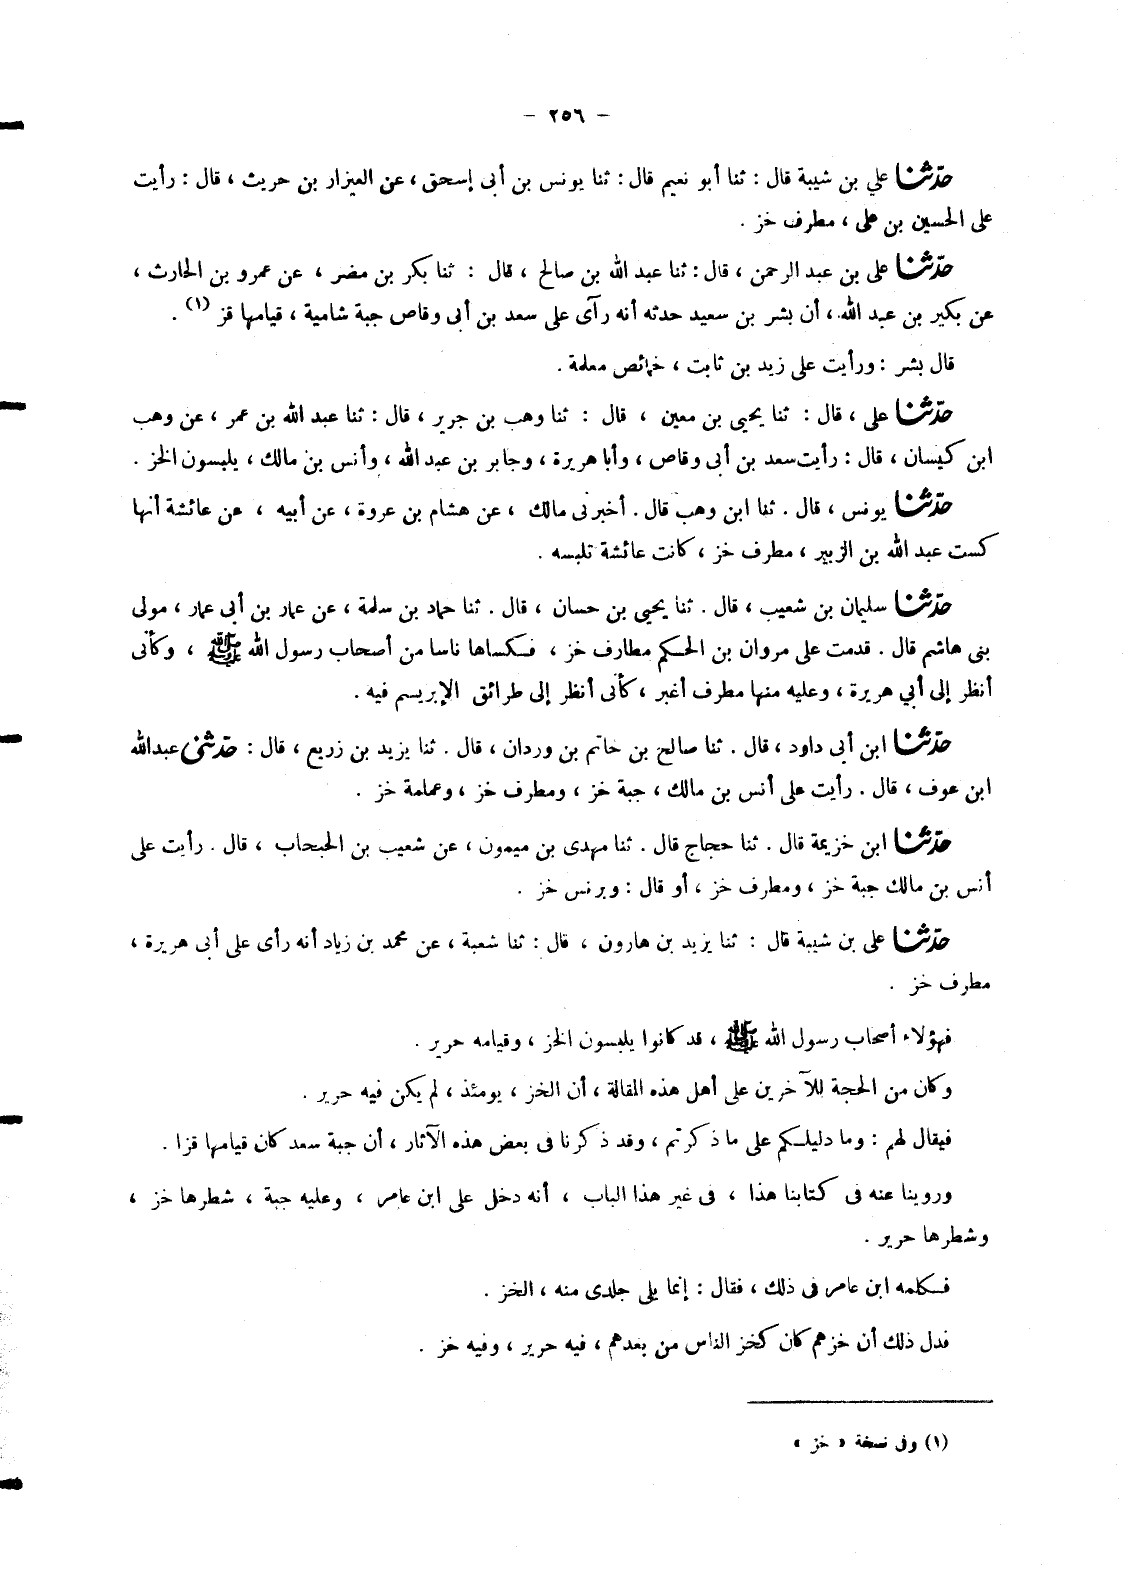 – ٢٥٦ –
حدّثنا علي بن شيبة قال : ثنا أبو نعيم قال : ثنا يونس بن أبى إسحق ، عن العيزار بن حريث ، قال : رأيت
على الحسين بن على ، مطرف خز .
حدّثنا على بن عبد الرحمن ، قال : ثنا عبد الله بن صالح ، قال : ثنا بكر بن مضر ، عن عمرو بن الحارث ،
عن بكير بن عبد الله ، أن بشر بن سعيد حدثه أنه رآى على سعد بن أبى وقاص جبة شامية ، قيامها قز (١) .
قال بشر : ورأيت على زيد بن ثابت ، خمائص معلمة .
حدّثنا على ، قال : ثنا يحيى بن معين ، قال : ثنا وهب بن جرير ، قال : ثنا عبد الله بن عمر ، عن وهب
ابن كيسان ، قال : رأيت سعد بن أبى وقاص ، وأبا هريرة ، وجابر بن عبد الله ، وأنس بن مالك ، يلبسون الخز .
حدّثنا يونس ، قال . ثنا ابن وهب قال . أخبرنى مالك ، عن هشام بن عروة ، عن أبيه ، عن عائشة أنها
كست عبد الله بن الزبير ، مطرف خز ، كانت عائشة تلبسه .
حدّثنا سليمان بن شعيب ، قال . ثنا يحيى بن حسان ، قال . ثنا حماد بن سلمة ، عن عمار بن أبى عمار ، مولى
بنى هاشم قال . قدمت على مروان بن الحكم مطارف خز ، فكساها ناسا من أصحاب رسول الله ﷺ ، وكأنى
أنظر إلى أبي هريرة ، وعليه منها مطرف أغبر ، كأنى أنظر إلى طرائق الإبريسم فيه .
حدّثنا ابن أبى داود ، قال . ثنا صالح بن حاتم بن وردان ، قال . ثنا يزيد بن زريع ، قال : حدّثنى عبدالله
ابن عوف ، قال . رأيت على أنس بن مالك ، جبة خز ، ومطرف خز ، وعمامة خز .
حدّثنا ابن خزيمة قال . ثنا حجاج قال . ثنا مهدى بن ميمون ، عن شعيب بن الحبحاب ، قال . رأيت على
أنس بن مالك جبة خز ، ومطرف خز ، أو قال : وبرنس خز .
حدّثنا على بن شيبة قال : ثنا يزيد بن هارون ، قال : ثنا شعبة ، عن محمد بن زياد أنه رأى على أبى هريرة ،
مطرف خز .
فهؤلاء أصحاب رسول الله ﷺ ، قد كانوا يلبسون الخز ، وقيامه حرير .
وكان من الحجة للآخرين على أهل هذه المقالة ، أن الخز ، يومئذ ، لم يكن فيه حرير .
فيقال لهم : وما دليلكم على ما ذكرتم ، وقد ذكرنا فى بعض هذه الآثار ، أن جبة سعد كان قيامها قزا .
وروينا عنه فى كتابنا هذا ، فى غير هذا الباب ، أنه دخل على ابن عامر ، وعليه جبة ، شطرها خز ،
وشطرها حرير .
فكلمه ابن عامر فى ذلك ، فقال : إنما يلى جلدى منه ، الخز .
فدل ذلك أن خزهم كان كخز الناس من بعدهم ، فيه حرير ، وفيه خز .
(١) وفى نسخة « خز »